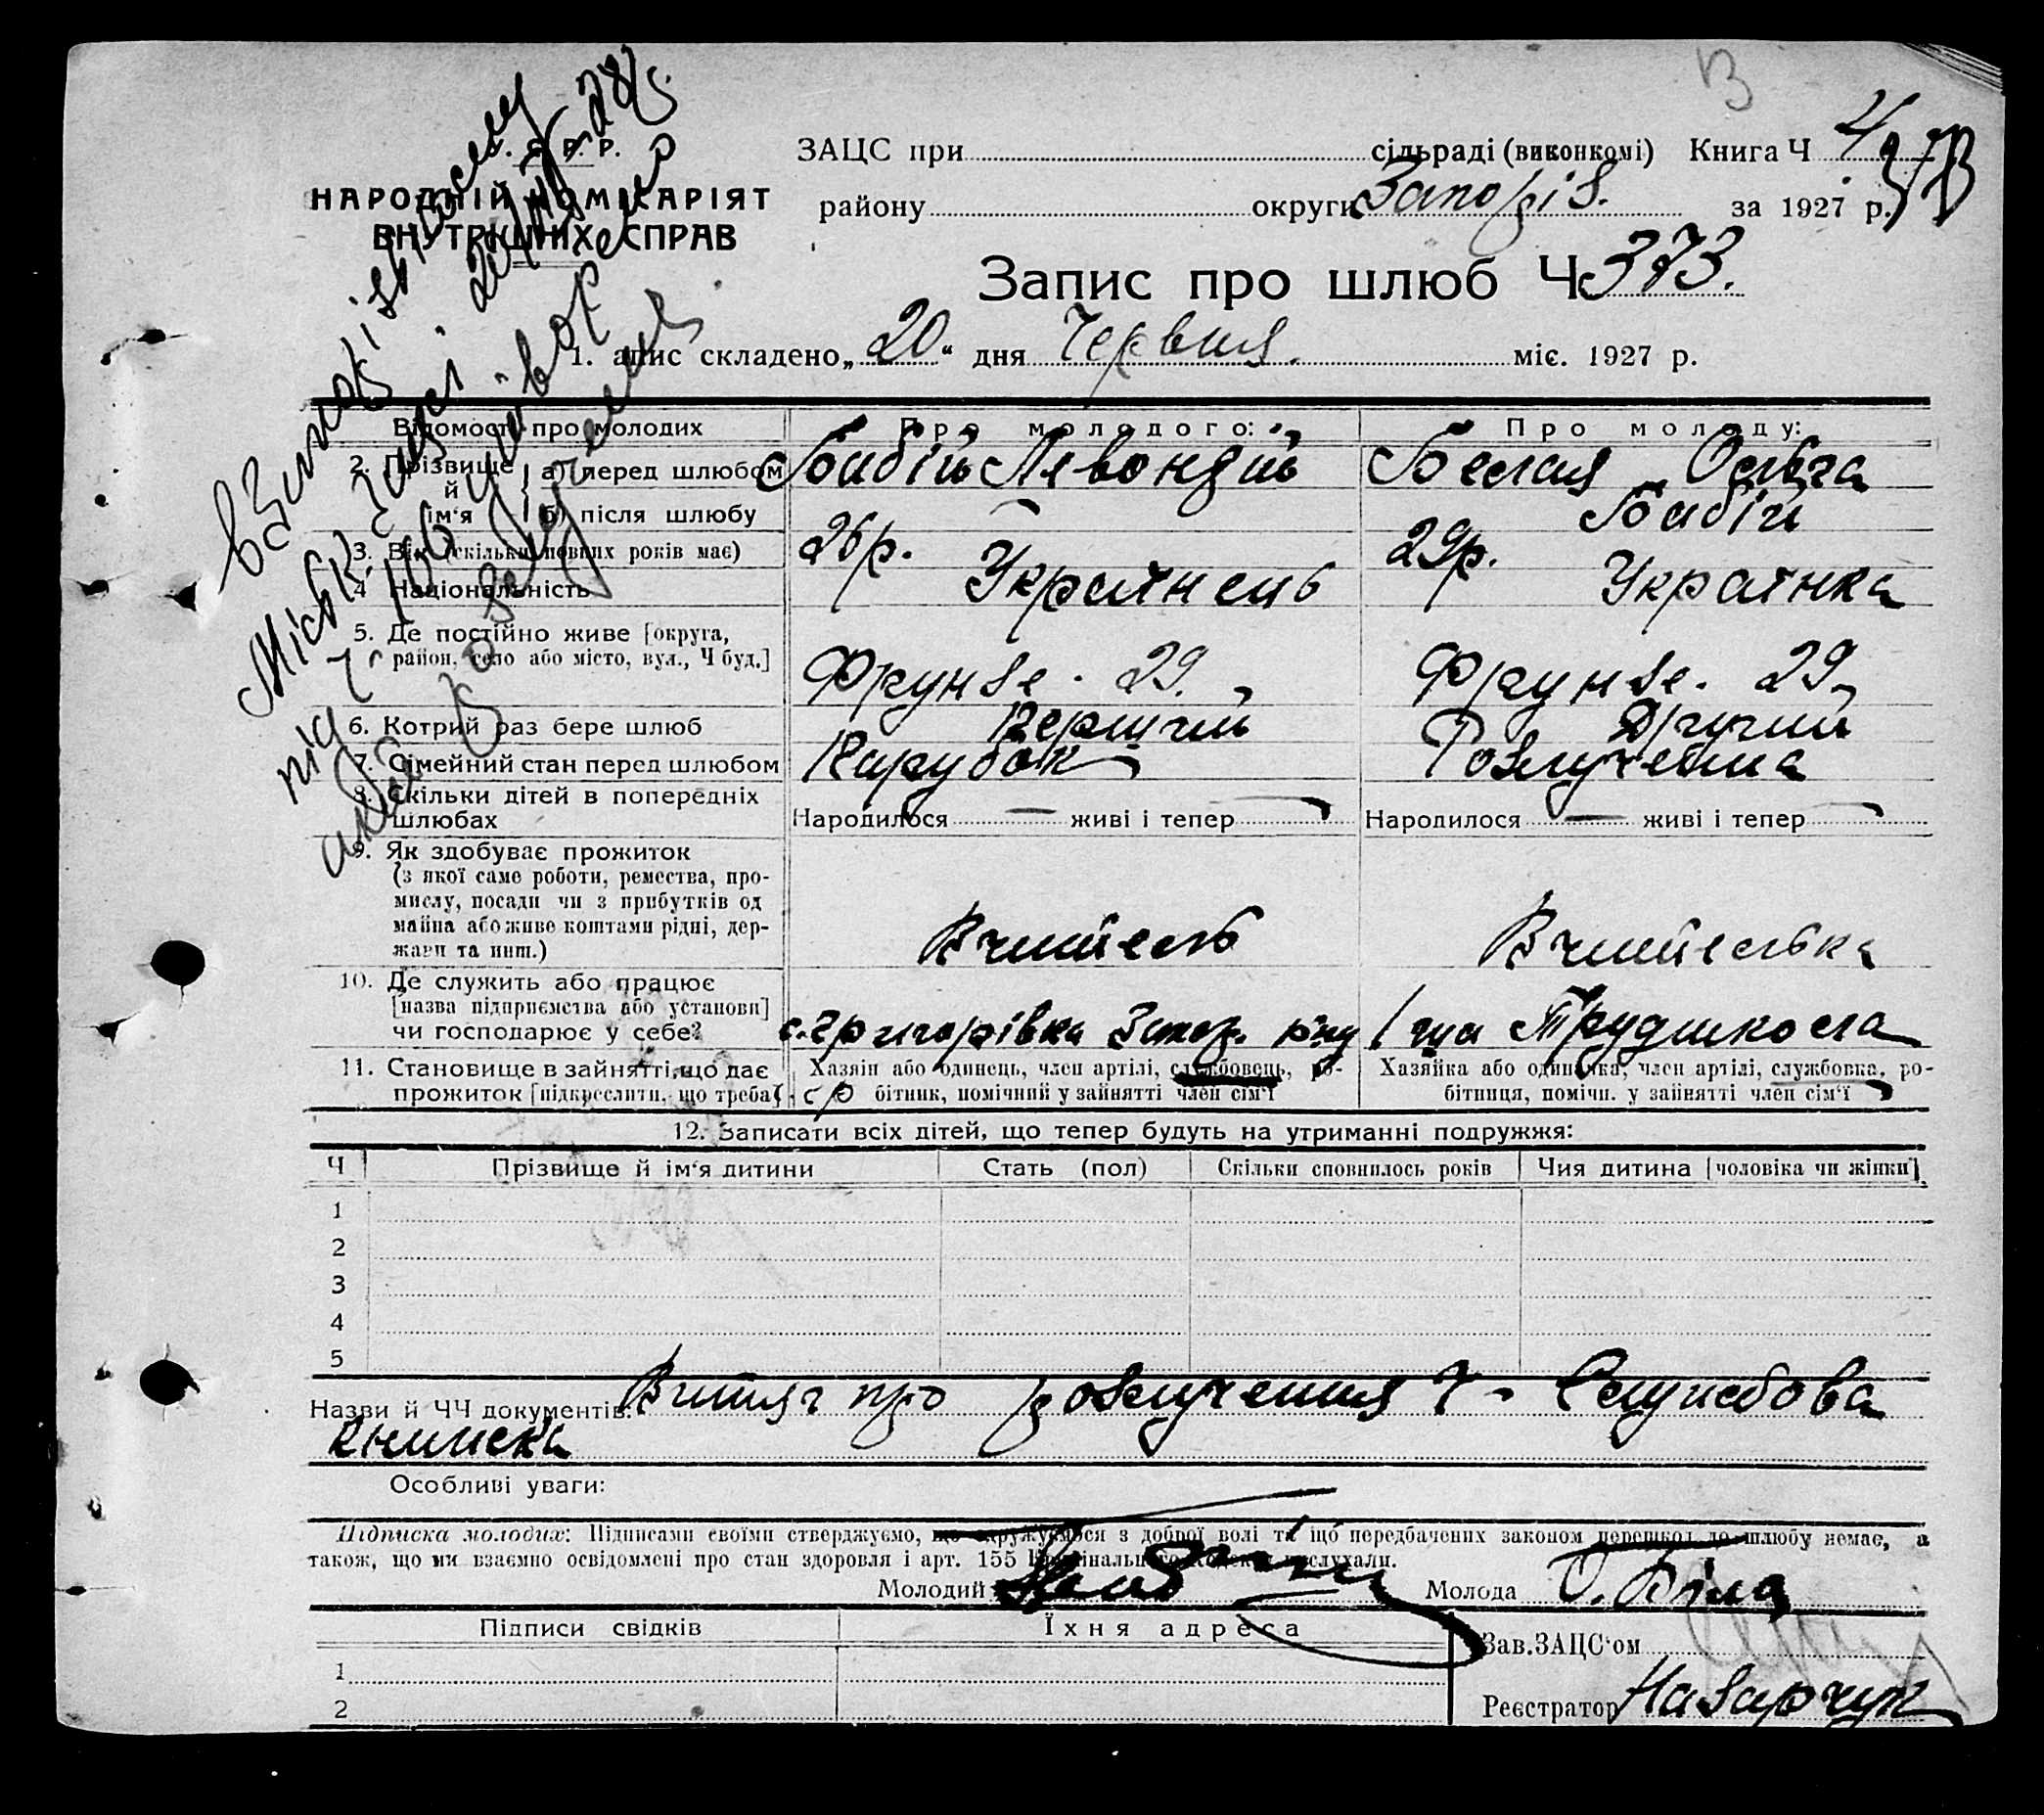 В
ЗАЦС при сільраді (виконкомі) Книга Ч 4
С. Р. Р.
НАРОДНІЙ КОМІСАРІЯТ
ВНУТРІШНІХ СПРАВ
району округи Запоріз. за 1927 р.
Запис про шлюб Ч 373.
1. апис складено „20“ дня Червня. міс. 1927 р.
Відомості про молодих Про молодого: Про молоду:
2. Прізвище й ім‘я
а) перед шлюбом Бабій Лявондій Белая Ольга
б) після шлюбу Бабій
3. Вік (скільки повних років має) 26 р. 29 р.
4 Національність Українець Українка
5. Де постійно живе [округа,
район, село або місто, вул., Ч буд.]
Фрунзе. 29. Фрунзе. 29
6. Котрий раз бере шлюб Перший Другий
7. Сімейний стан перед шлюбом Парубок Розлучена
8. Скільки дітей в попередніх
шлюбах
Народилося — живі і тепер Народилося — живі і тепер
9. Як здобуває прожиток
(з якої саме роботи, ремества, про-
мислу, посади чи з прибутків од
майна або живе коштами рідні, дер-
жави та инш.)
Вчитель Вчителька
10. Де служить або працює
[назва підприємства або установи]
чи господарює у себе?
с. Григорівка Запор. р-ну 1 ша Трудшкола
11. Становище в занятті, що дає
прожиток [підкреслити, що треба]
Хазяїн або одинець, член артілі, службовець, ро-
бітник, помічний у занятті член сім‘ї
Хазяйка або одиначка, член артілі, службовка, ро-
бітниця, помічн. у занятті член сім‘ї
12. Записати всіх дітей, що тепер будуть на утриманні подружжя:
Ч Прізвище й ім‘я дитини Стать (пол) Скільки сповнилось років Чия дитина [чоловіка чи жінки]
1
2
3
4
5
Назви й ЧЧ документів: Витяг про розлучення Службова
книжка
Особливі уваги:
Підписка молодих: Підписами своїми стверджуємо, що одружуємося з доброї волі та що передбачених законом перешкод до шлюбу немає, а
також, що ми взаємно освідомлені про стан здоровля і арт. 155 Кримінального Кодексу вислухали.
Молодий Бабій Молода О. Біла
Підписи свідків Їхня адреса
Зав. ЗАЦС‘ом
1
2
Реєстратор Назарчук